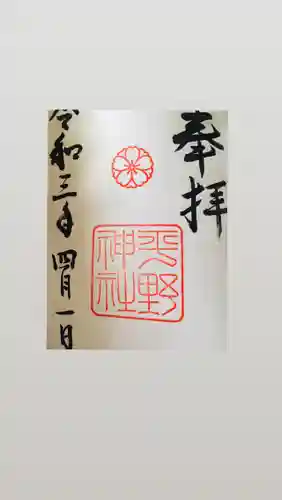 奉拝
平野
神社
令和三年四月一日